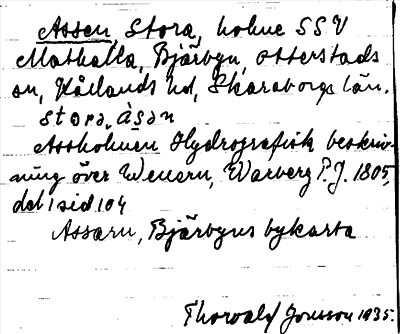 Assen, Stora, holme SSV
Mathalla, Bjärbyn, Otterstads
sn, Kållands hd, Skaraborgs län.
stora, åsan
Assholmen Hydrografisk beskriv-
ning över Wenern, Warberg P.J. 1805,
del 1 sid 104
Assarn, Bjärbyns bykarta
Thorvald Jonsson 1935.